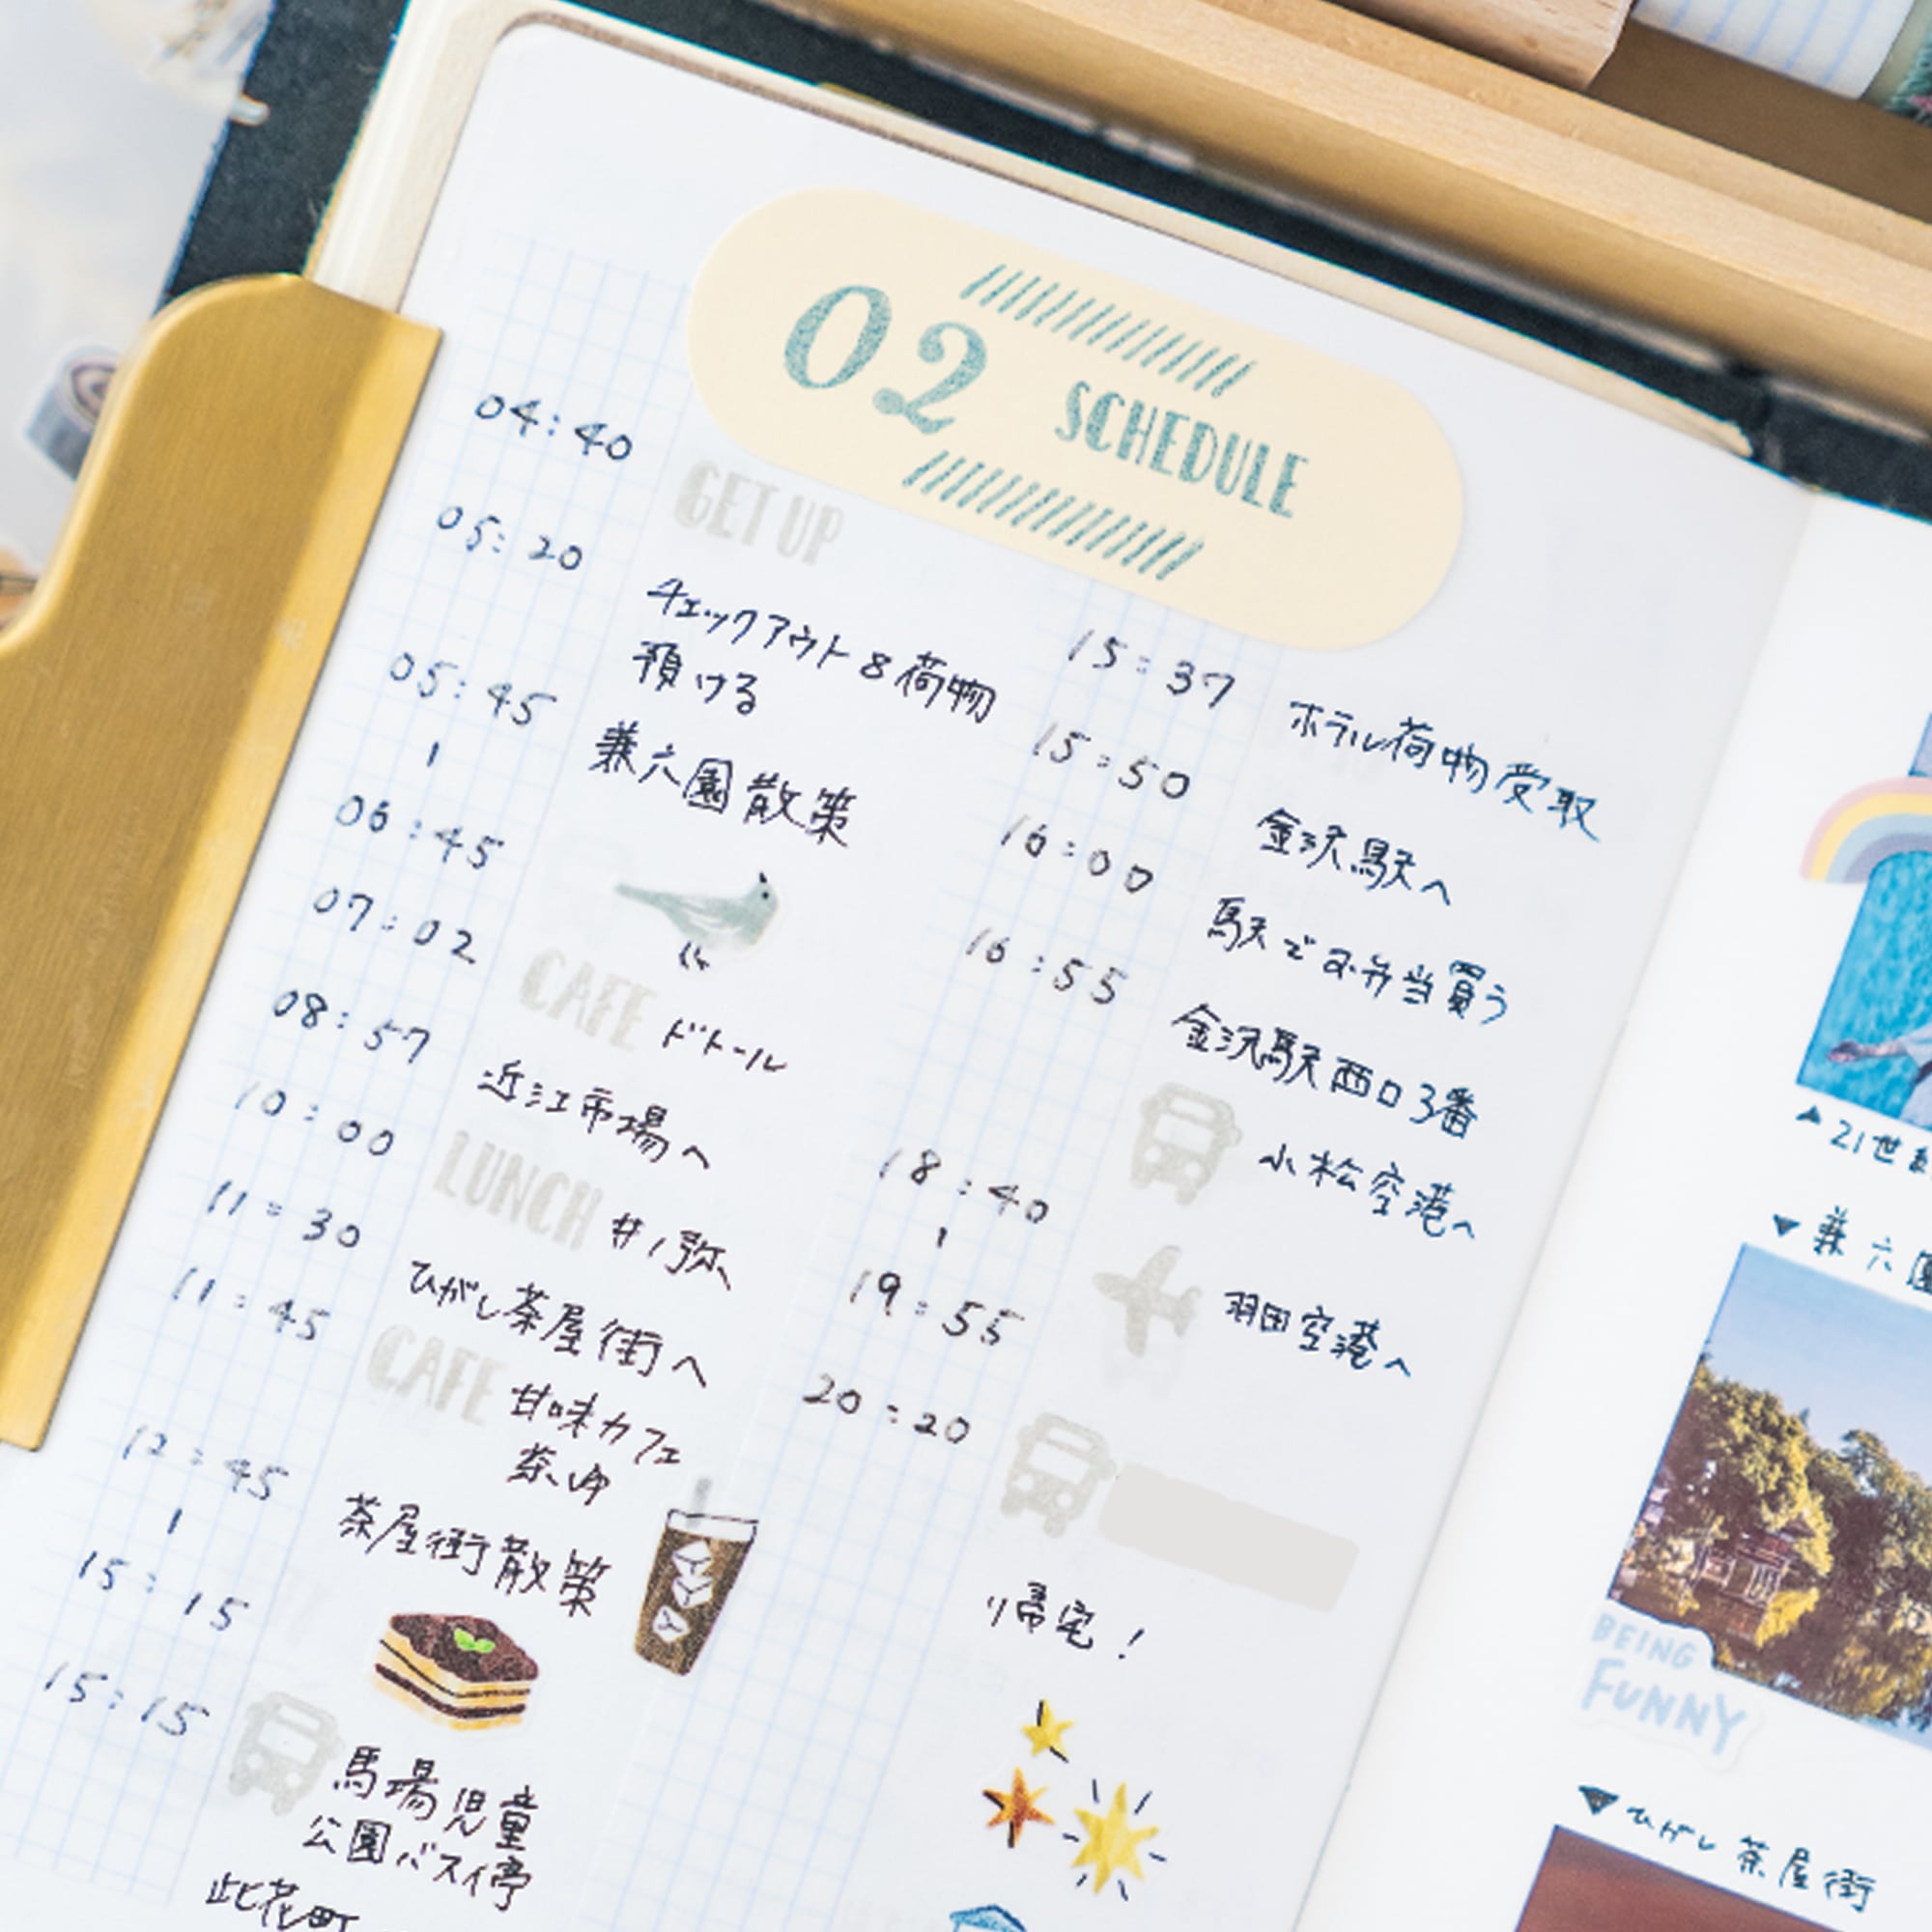 02 SCHEDULE
04:40 GET UP
05:20 チェックアウト&荷物
預ける
05:45
|
06:45
兼六園散策
07:02 CAFE ドトール
08:57 近江市場へ
10:00 LUNCH 井ノ弥
11:30 ひがし茶屋街へ
11:45 CAFE 甘味カフェ
茶ゆ
12:45
|
15:15
茶屋街散策
15:15 馬場児童
公園バス停
此花町
15:37 ホテル荷物受取
15:50 金沢駅へ
16:00 駅でお弁当買う
16:55 金沢駅西口3番
小松空港へ
18:40
|
19:55
羽田空港へ
20:20
帰宅!
▲21世紀
▼兼六園
BEING
FUNNY
▼ひがし茶屋街